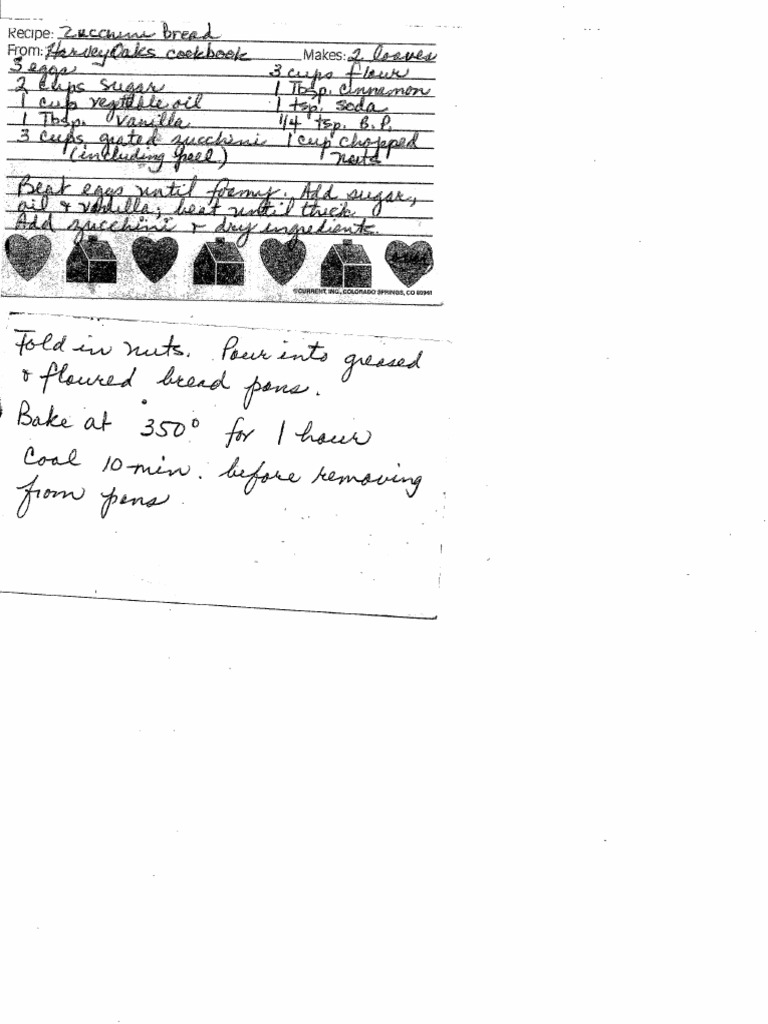 Recipe: Zucchini bread
From: Harvey Oaks cookbook Makes: 2 loaves
3 eggs 3 cups flour
2 cups sugar 1 Tbsp. cinnamon
1 cup vegtable oil 1 tsp. soda
1 Tbsp. vanilla 1/4 tsp. B.P.
3 cups grated zucchini 1 cup chopped
(including peel) nuts
Beat eggs until foamy. Add sugar,
oil & vanilla; beat until thick.
Add zucchini & dry ingredients.
over
©CURRENT, INC., COLORADO SPRINGS, CO 80941
Fold in nuts. Pour into greased
& floured bread pans.
Bake at 350° for 1 hour
Cool 10 min. before removing
from pans